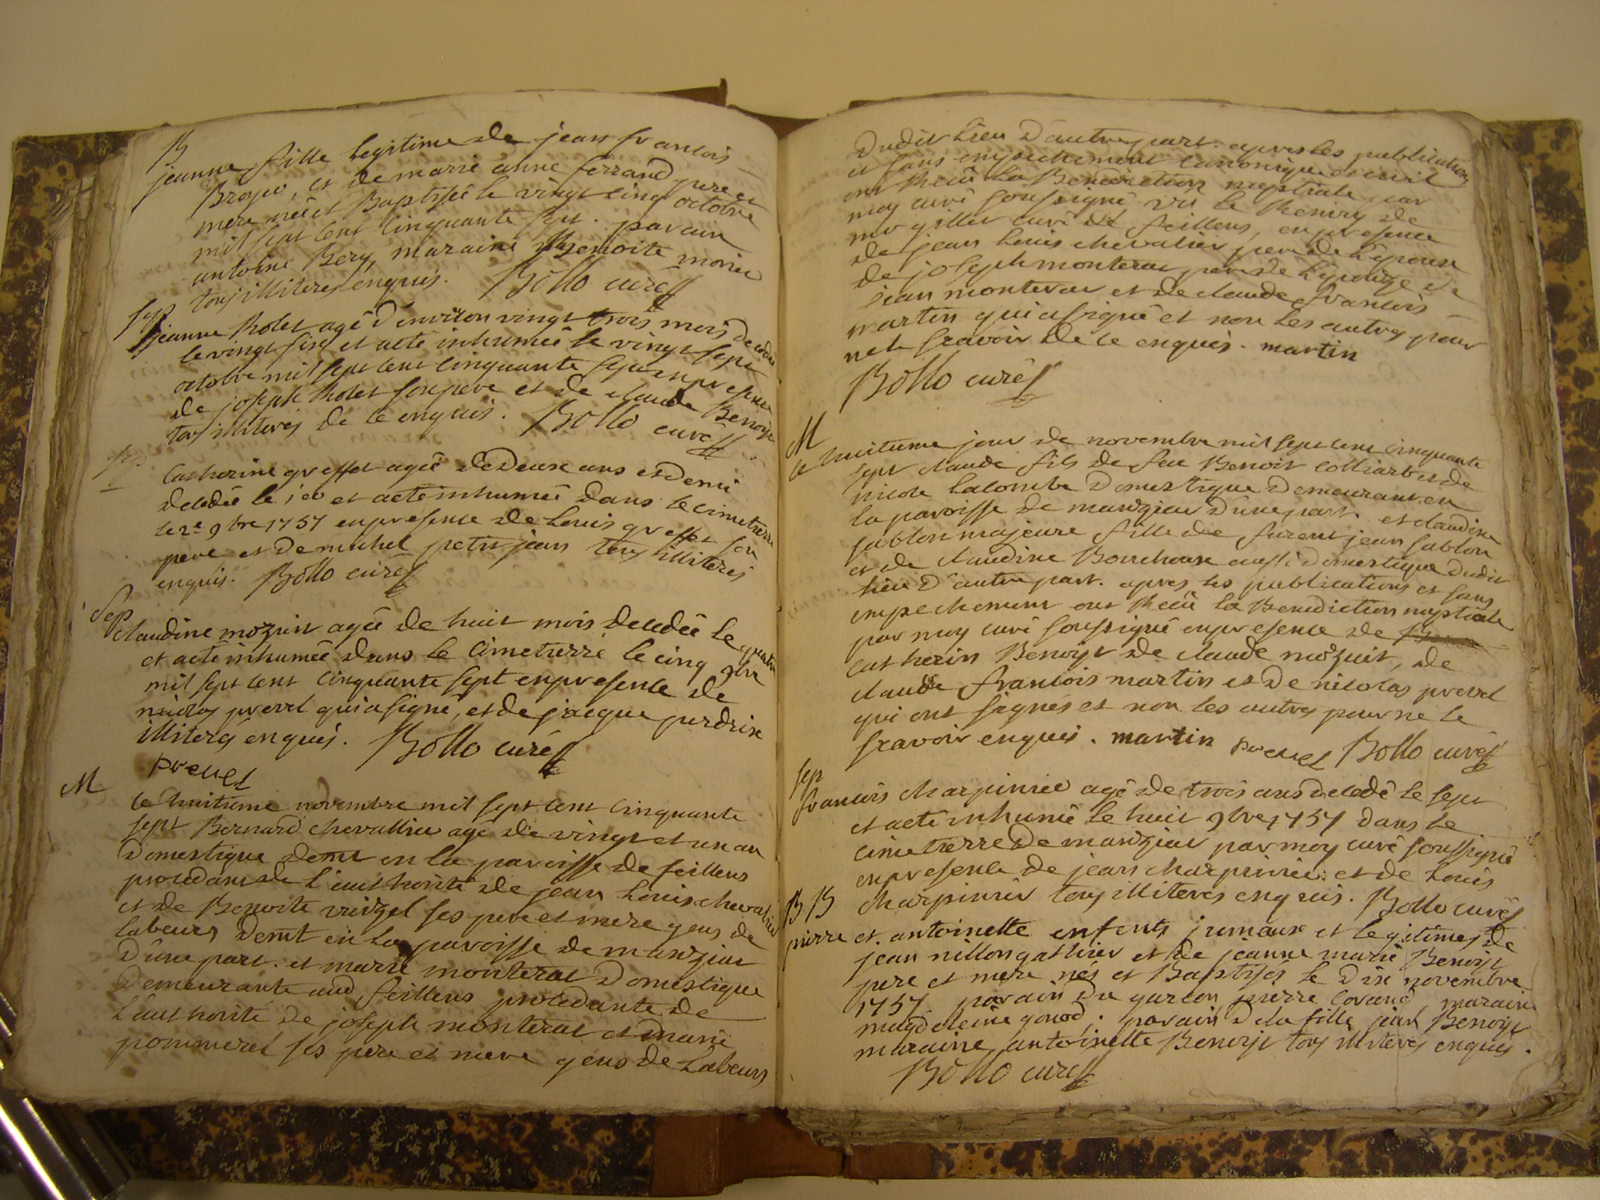 B
jeanne fille legitime de jean francois
Broyer, et de marie anne ferrand pere et
mere née et Baptisée le vingt cinq octobre
mil sept cent cinquante sept. parain
antoine Bery, maraine Benoite morier
tous illiteres enquis. Bollo curé
Sep
jeanne Rolet agé d'environ vingt trois mois decedée
le vingt six et acté inhumée le vingt sept
octobre mil sept cent cinquante sept en presence
de joseph Rolet son pere et de claude Benoist
tous illiteres de ce enquis. Bollo curé
Sep
Catherine greffet agée de Deux ans et demi
decedée le 1er et acté inhumée dans le cimetierre
le 2e 9bre 1757 en presence de Louis greffet son
pere et de michel petit jean tous illiteres
enquis. Bollo curé
Sep
claudine mozuit agée de huit mois decedée le quatre
et acté inhumée dans le Cimetierre le cinq 9bre
mil sept cent cinquante sept en presence de
nicolas prevel qui a signé, et de jacque perdrix
illiteres enquis. Bollo curé
prevel
M
le huitieme novembre mil sept cent cinquante
sept Bernard chevallier agé de vingt et un an
Domestique demt en la paroisse de feillens
procedant de l'authorité de jean Louis chevalier
et de Benoite vuizel ses pere et mere gens de
labeurs demt en la paroisse de manziat
d'une part. et marie monterat domestique
demeurante aud feillens procedante de
l'authorité de joseph monterat et marie
pommerel ses pere et mere gens de Labeurs
Dudit Lieu D'autre part. apres les publications
et sans empechement canonique et civil
ont Receu la Benediction nuptiale par
moy curé soussigné vu le Remis de
mr gillet curé de feillens, en presence
de jean Louis chevalier pere de l'epoux
de joseph monterat pere de l'epouse de
jean monterat et de claude francois
martin qui a signé et non les autres pour
ne le scavoir de ce enquis. martin
Bollo curé
M
le huitieme jour de novembre mil sept cent cinquante
sept claude fils de feu Benoit colliard et de
nicole lacombe Domestique Demeurant en
la paroisse de manziat d'une part. et claudine
sablon majeure fille de furent jean sablon
et de claudine Bourchoux aussi domestique dudit
lieu d'autre part. apres les publications et sans
empechement ont Receu la Benediction nuptiale
par moy curé soussigné en presence de
catherin Benoist de claude mozuit, de
claude francois martin et de nicolas prevel
qui ont signés et non les autres pour ne le
scavoir enquis. martin prevel Bollo curé
Sep
francois charpinier agé de trois ans decedé le sept
et acté inhumé le huit 9bre 1757 dans le
cimetierre de manziat par moy curé soussigné
en presence de jean charpinier et de Louis
charpinier tous illiteres enquis. Bollo curé
B B
pierre et antoinette enfents jumaux et legitimes de
jean nillon gathier et de jeanne marie Benoist
pere et mere nés et Baptisés le dix novembre
1757 parain du garcon pierre Covand, maraine
magdeleine gonod. parain de la fille jean Benoist
maraine antoinette Benoist tous illiteres enquis.
Bollo curé